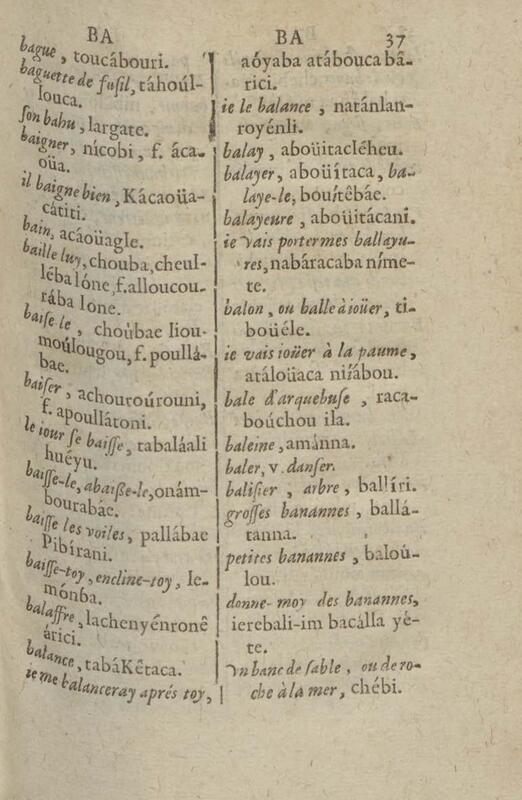 BA
bague, toucábouri.
baguette de fusil, táhoúl-
louca.
son bahu, largate.
baigner, nícobi, f. áca-
oüa.
il baigne bien, Kácaoüa-
cátiti.
bain, acáoüagle.
baille luy, chouba, cheul-
léba lóne, f. alloucou-
rába lone.
baise le, choúbae lioú-
moúlougou, f. poullá-
bae.
baiser, achouroúrouni,
f. apoullátoni.
le iour se baisse, tabaláali
huéyu.
baisse-le, abaisse-le, onám-
bourabae.
baisse les voiles, pallábae
Pibírani.
baisse-toy, encline-toy, Ie-
mónba.
balaffre, lachenyénronê
árici.
balance, tabáKêtaca.
ie me balanceray aprés toy,
BA 37
aóyaba atábouca bâ-
rici.
ie le balance, natánlan-
royénli.
balay, aboüitacléheu.
balayer, aboüítaca, ba-
laye-le, bouítêbáe.
balayeure, aboüitácani.
ie vais porter mes ballayu-
res, nabáracaba níme-
te.
balon, ou balle à ioüer, ti-
boüéle.
ie vais ioüer à la paume,
atáloüaca niíábou.
bale d'arquebuse, raca-
boúchou ila.
baleine, amánna.
baler, v. danser.
balisier, arbre, ballíri.
grosses banannes, ballá-
tanna.
petites banannes, baloú-
lou.
donne-moy des banannes,
ierebali-im bacálla yé-
te.
vn banc de sable, ou de ro-
che à la mer, chébi.